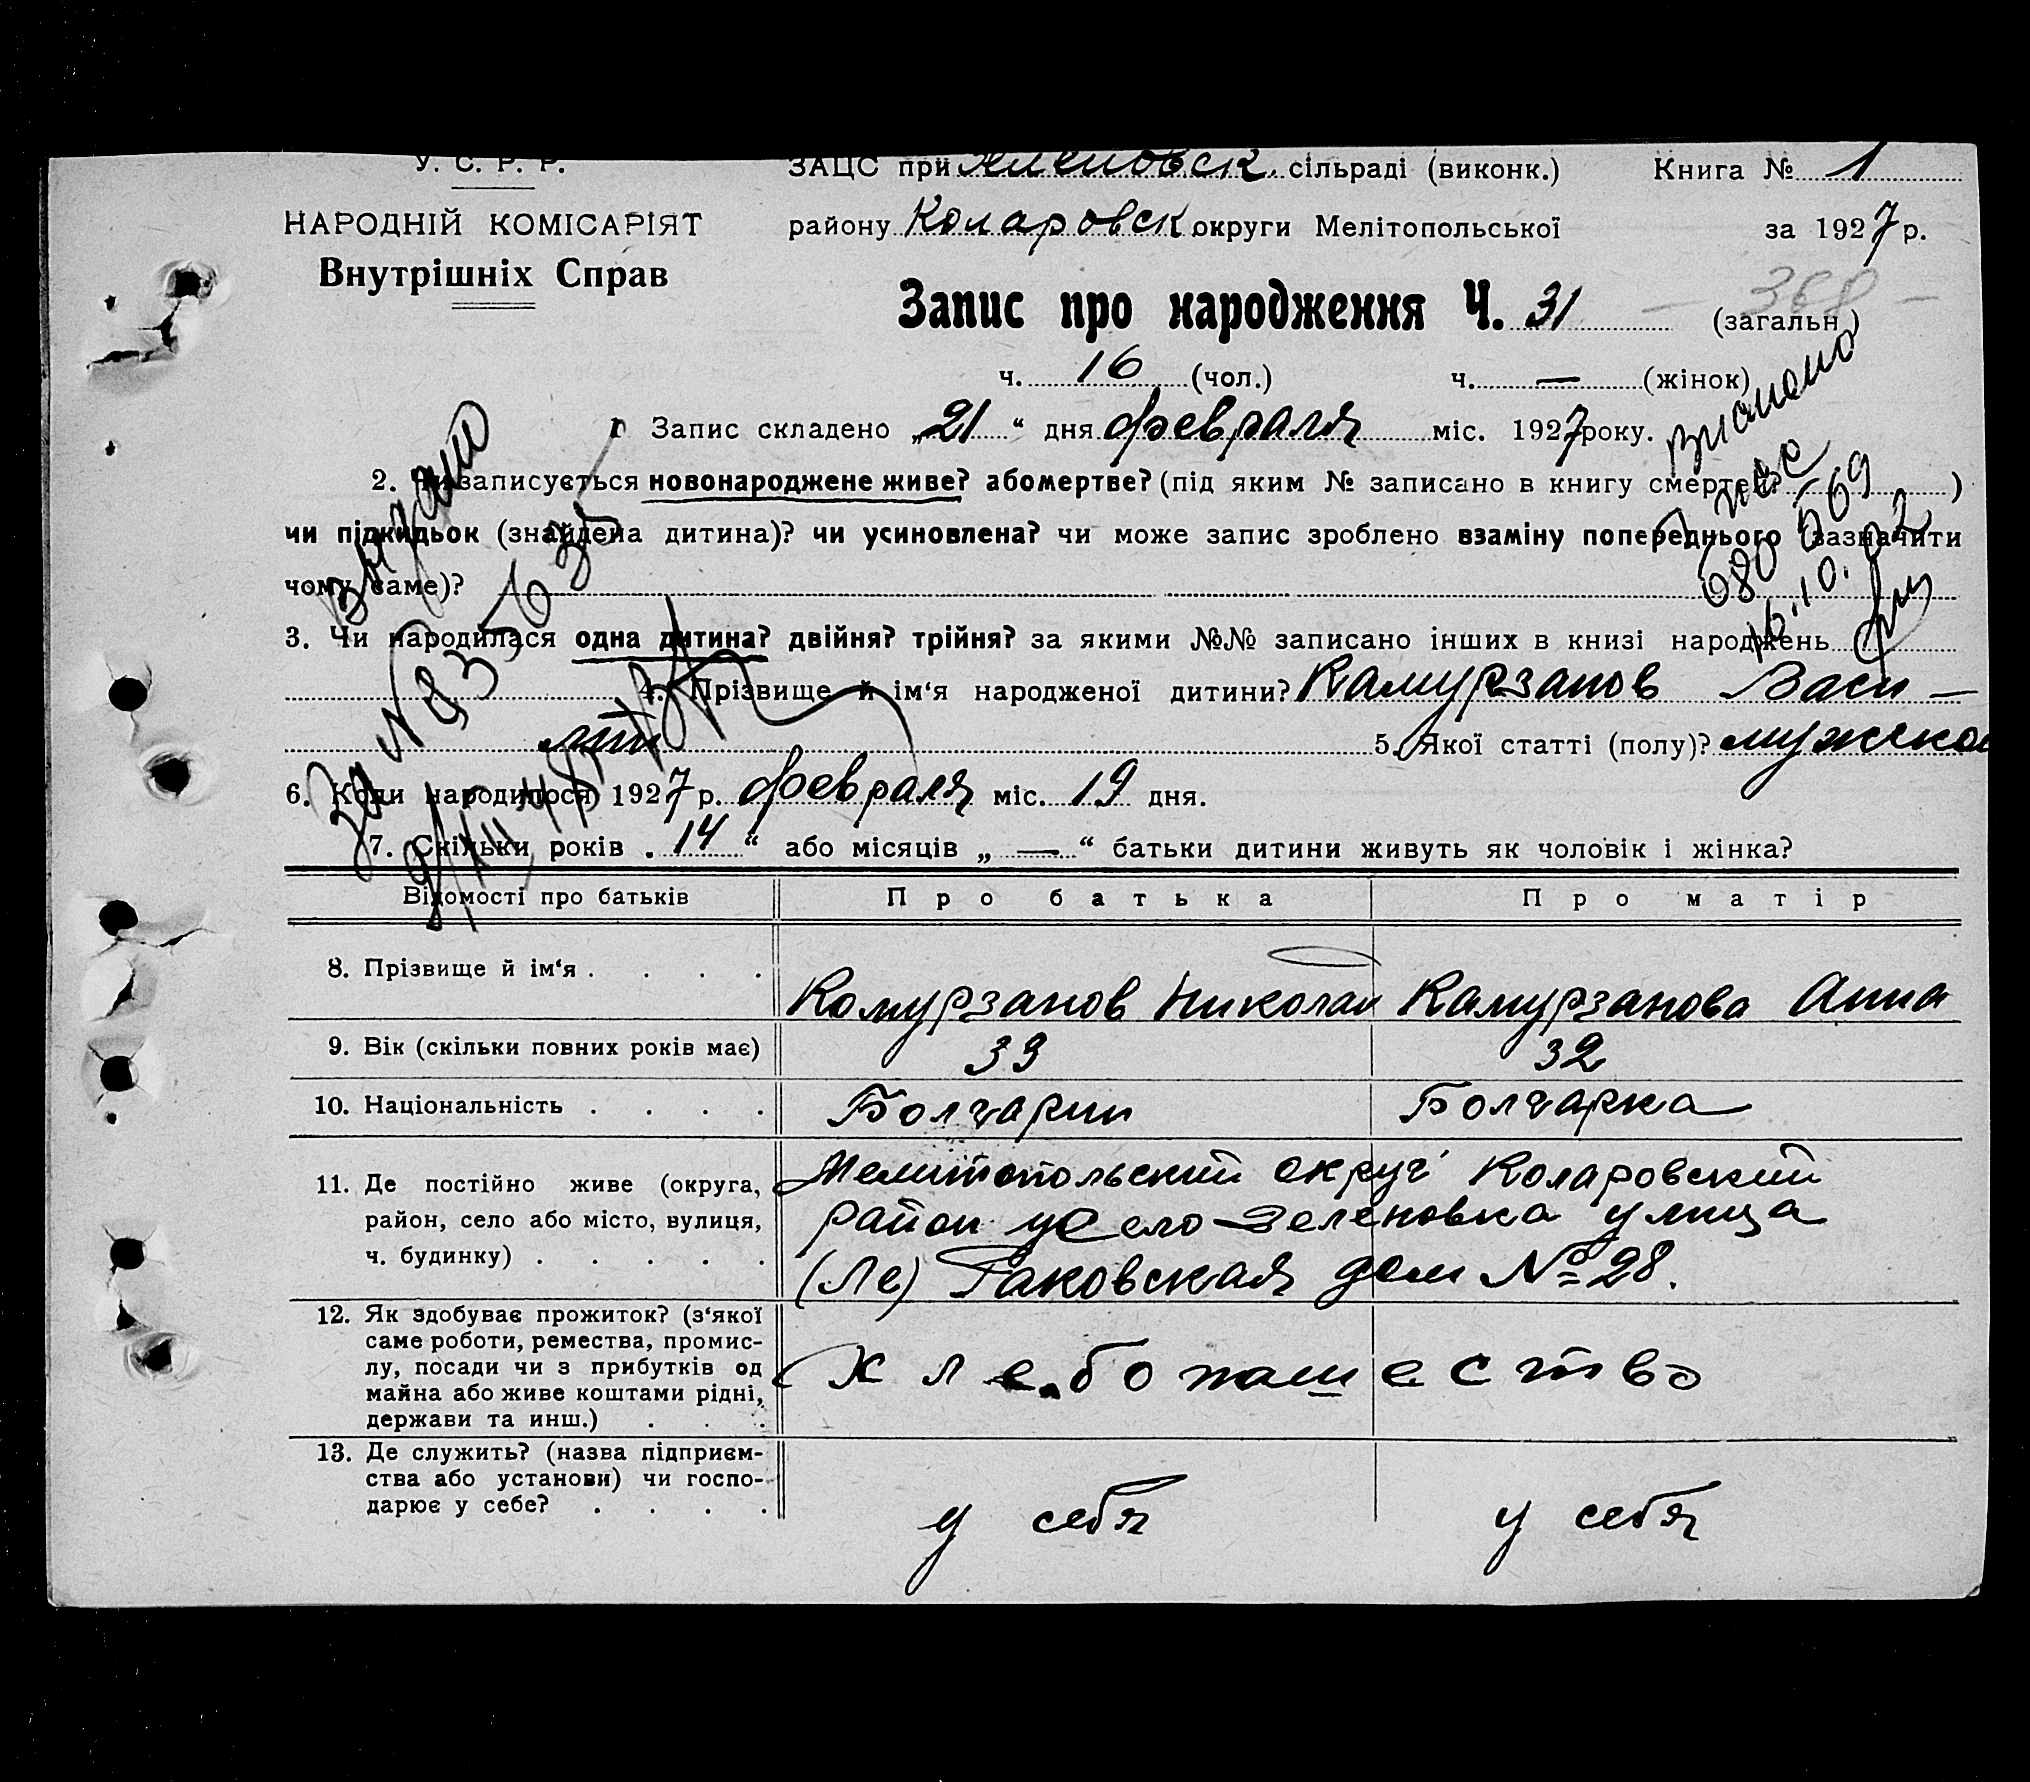 У. С. Р. Р.
НАРОДНІЙ КОМІСАРІЯТ
Внутрішніх Справ
ЗАЦС при сільраді (виконк.) Книга № 1
району Коларовск округи Мелітопольської за 1927 р.
Запис про народження Ч. 31 (загальн.)
368
ч. 16 (чол.) ч. — (жінок)
1 Запис складено „21“ дня февраля міс. 1927 року.
2. Чи записується новонароджене живе? або мертве? (під яким № записано в книгу смертей? )
чи підкидьок (знайдена дитина)? чи усиновлена? чи може запис зроблено взаміну попереднього (зазначити
чому саме)?
3. Чи народилася одна дитина? двійня? трійня? за якими №№ записано інших в книзі народжень
4. Прізвище й ім‘я народженої дитини? Камурзанов Васи-
лий 5. Якої статті (полу)? мужской
6. Коли народилося 1927 р. февраля міс. 19 дня.
7. Скільки років „14“ або місяців „—“ батьки дитини живуть як чоловік і жінка?
Выдано
За №
Відомості про батьків Про батька Про матір
8. Прізвище й ім‘я . . . . Комурзанов Николай Камурзанова Анна
9. Вік (скільки повних років має) 33 32
10. Національність . . . . Болгарин Болгарка
11. Де постійно живе (округа,
район, село або місто, вулиця,
ч. будинку) . . . . .
Мелитопольский округ Коларовский
район село Зеленовка улица
(Ле) Раковская дом № 28.
12. Як здобуває прожиток? (з‘якої
саме роботи, ремества, промис-
лу, посади чи з прибутків од
майна або живе коштами рідні,
держави та инш.) . . .
Хлебопашество
13. Де служить? (назва підприєм-
ства або установи) чи госпо-
дарює у себе? . . . .
у себя у себя